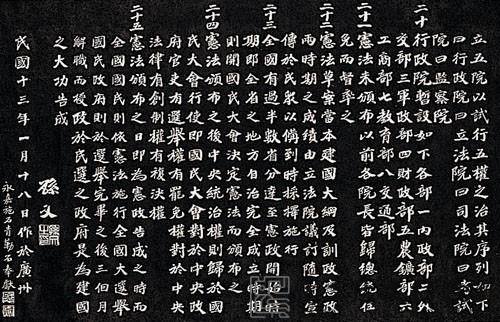 立五院以試行五權之治其序列如下
曰行政院曰立法院曰司法院曰考試
院曰監察院
二十行政院暫設如下各部一內政部二外
交部三軍政部四財政部五農鑛部六
工商部七教育部八交通部
二十一憲法未頒布以前各院長皆歸總統任
免而督率之
二十二憲法草案當本建國大綱及訓政憲政
兩時期之成績由立法院議訂隨時宣
傳於民衆以備到時採擇施行
二十三全國有過半數省分達至憲政開始時
期即全省之地方自治完全成立時期
則開國民大會決定憲法而頒布之
二十四憲法頒布之後中央統治權則歸於國
民大會行使即國民大會對於中央政
府官吏有選舉權有罷免權對於中央
法律有創制權有複決權
二十五憲法頒布之日即為憲政告成之時而
全國國民則依憲法施行全國大選舉
國民政府則於選舉完畢之後三個月
解職而授政於民選之政府是為建國
之大功告成
孫文
民國十三年一月十八日作於廣州
永嘉施石青勒石奉獻